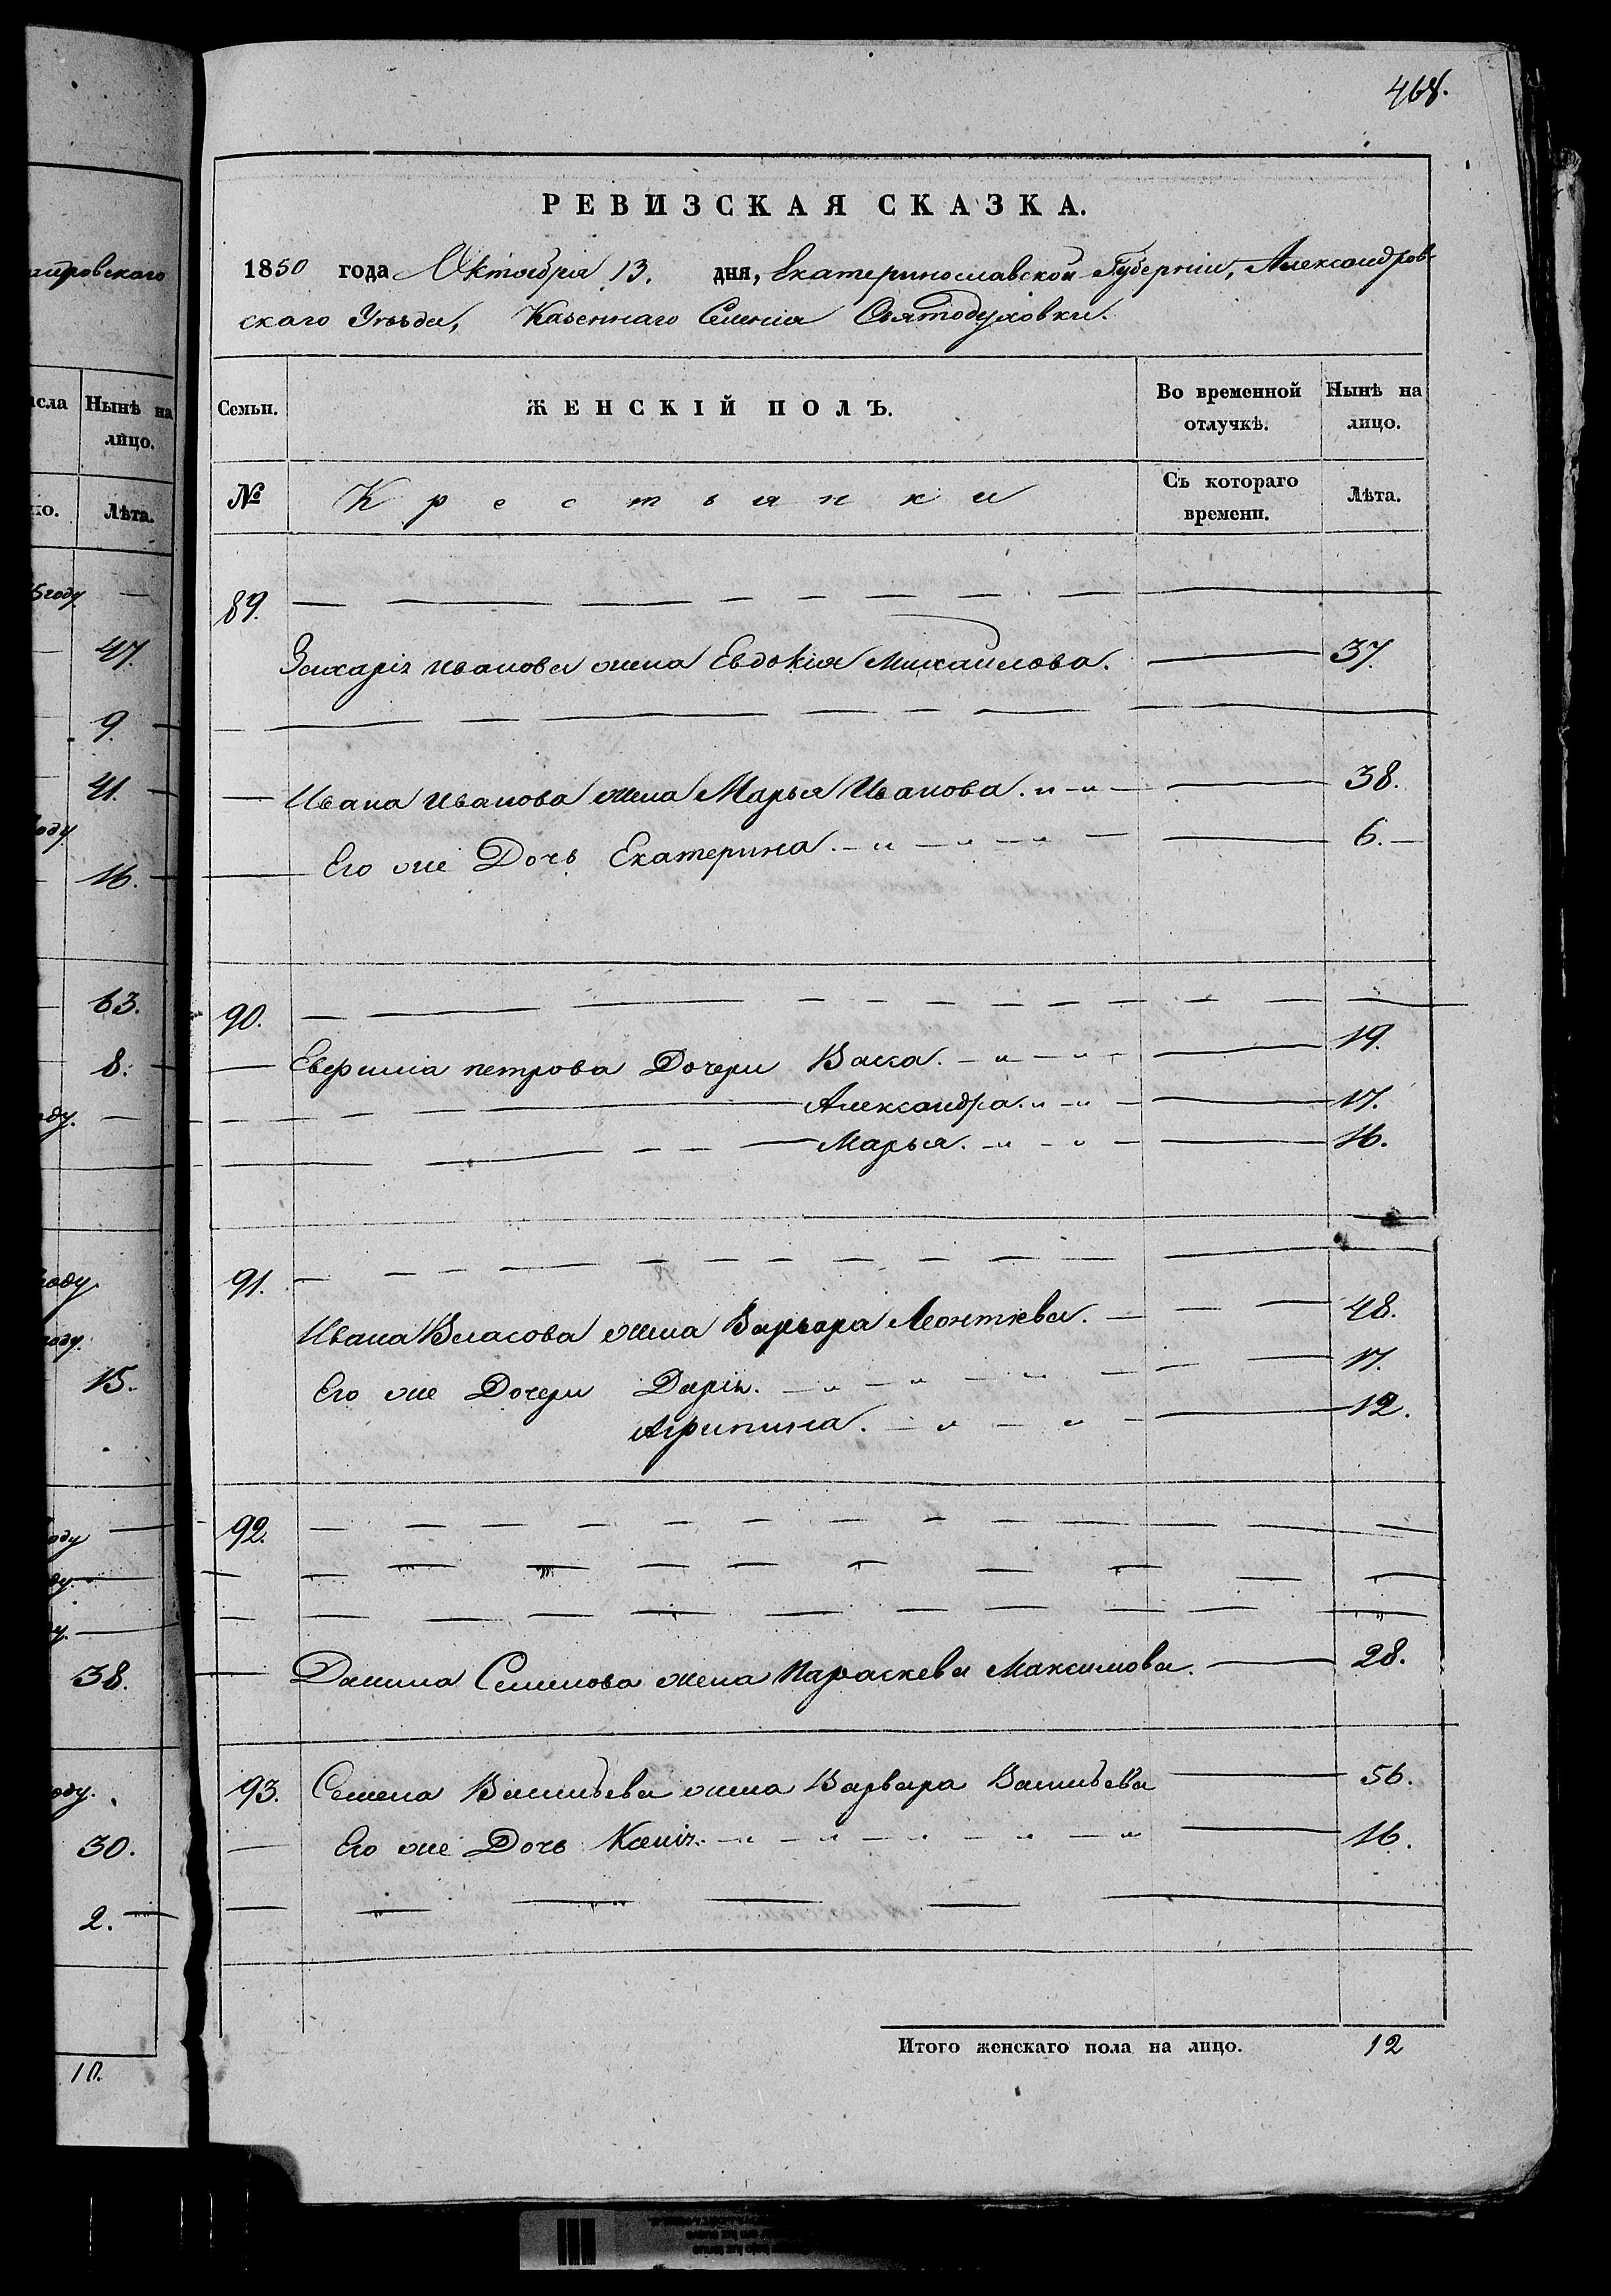 468.
РЕВИЗСКАЯ СКАЗКА.
1850 года Октября 13. дня, Екатеринославской Губерніи, Александров-
скаго Уѣзда, Казеннаго Селенія Святодуховки.
Семьи. ЖЕНСКІЙ ПОЛЪ. Во временной отлучкѣ. Нынѣ на лицо.
№ Крестьянки Съ котораго времени. Лѣта.
89.
Захарія Иванова жена Евдокія Михаилова. 37.
Ивана Иванова жена Марья Иванова. 38.
Его же Дочь Екатерина. 6.
90.
петрова Дочери Васса. 19.
Александра. 17.
Марья. 16.
91.
Ивана Власова жена Варвара Леонтьева. 48.
Его же Дочери Дарія. 17.
Агрипина. 12.
92.
Данила Семенова жена Параскева Максимова. 28.
93. Семена Васильева жена Варвара Васильева 56.
Его же Дочь Ксенія. 16.
Итого женскаго пола на лицо. 12
андровскаго
исла Нынѣ на
лицо.
Лѣта.
47.
9.
41.
16.
63.
8.
15.
38.
30.
2.
10.